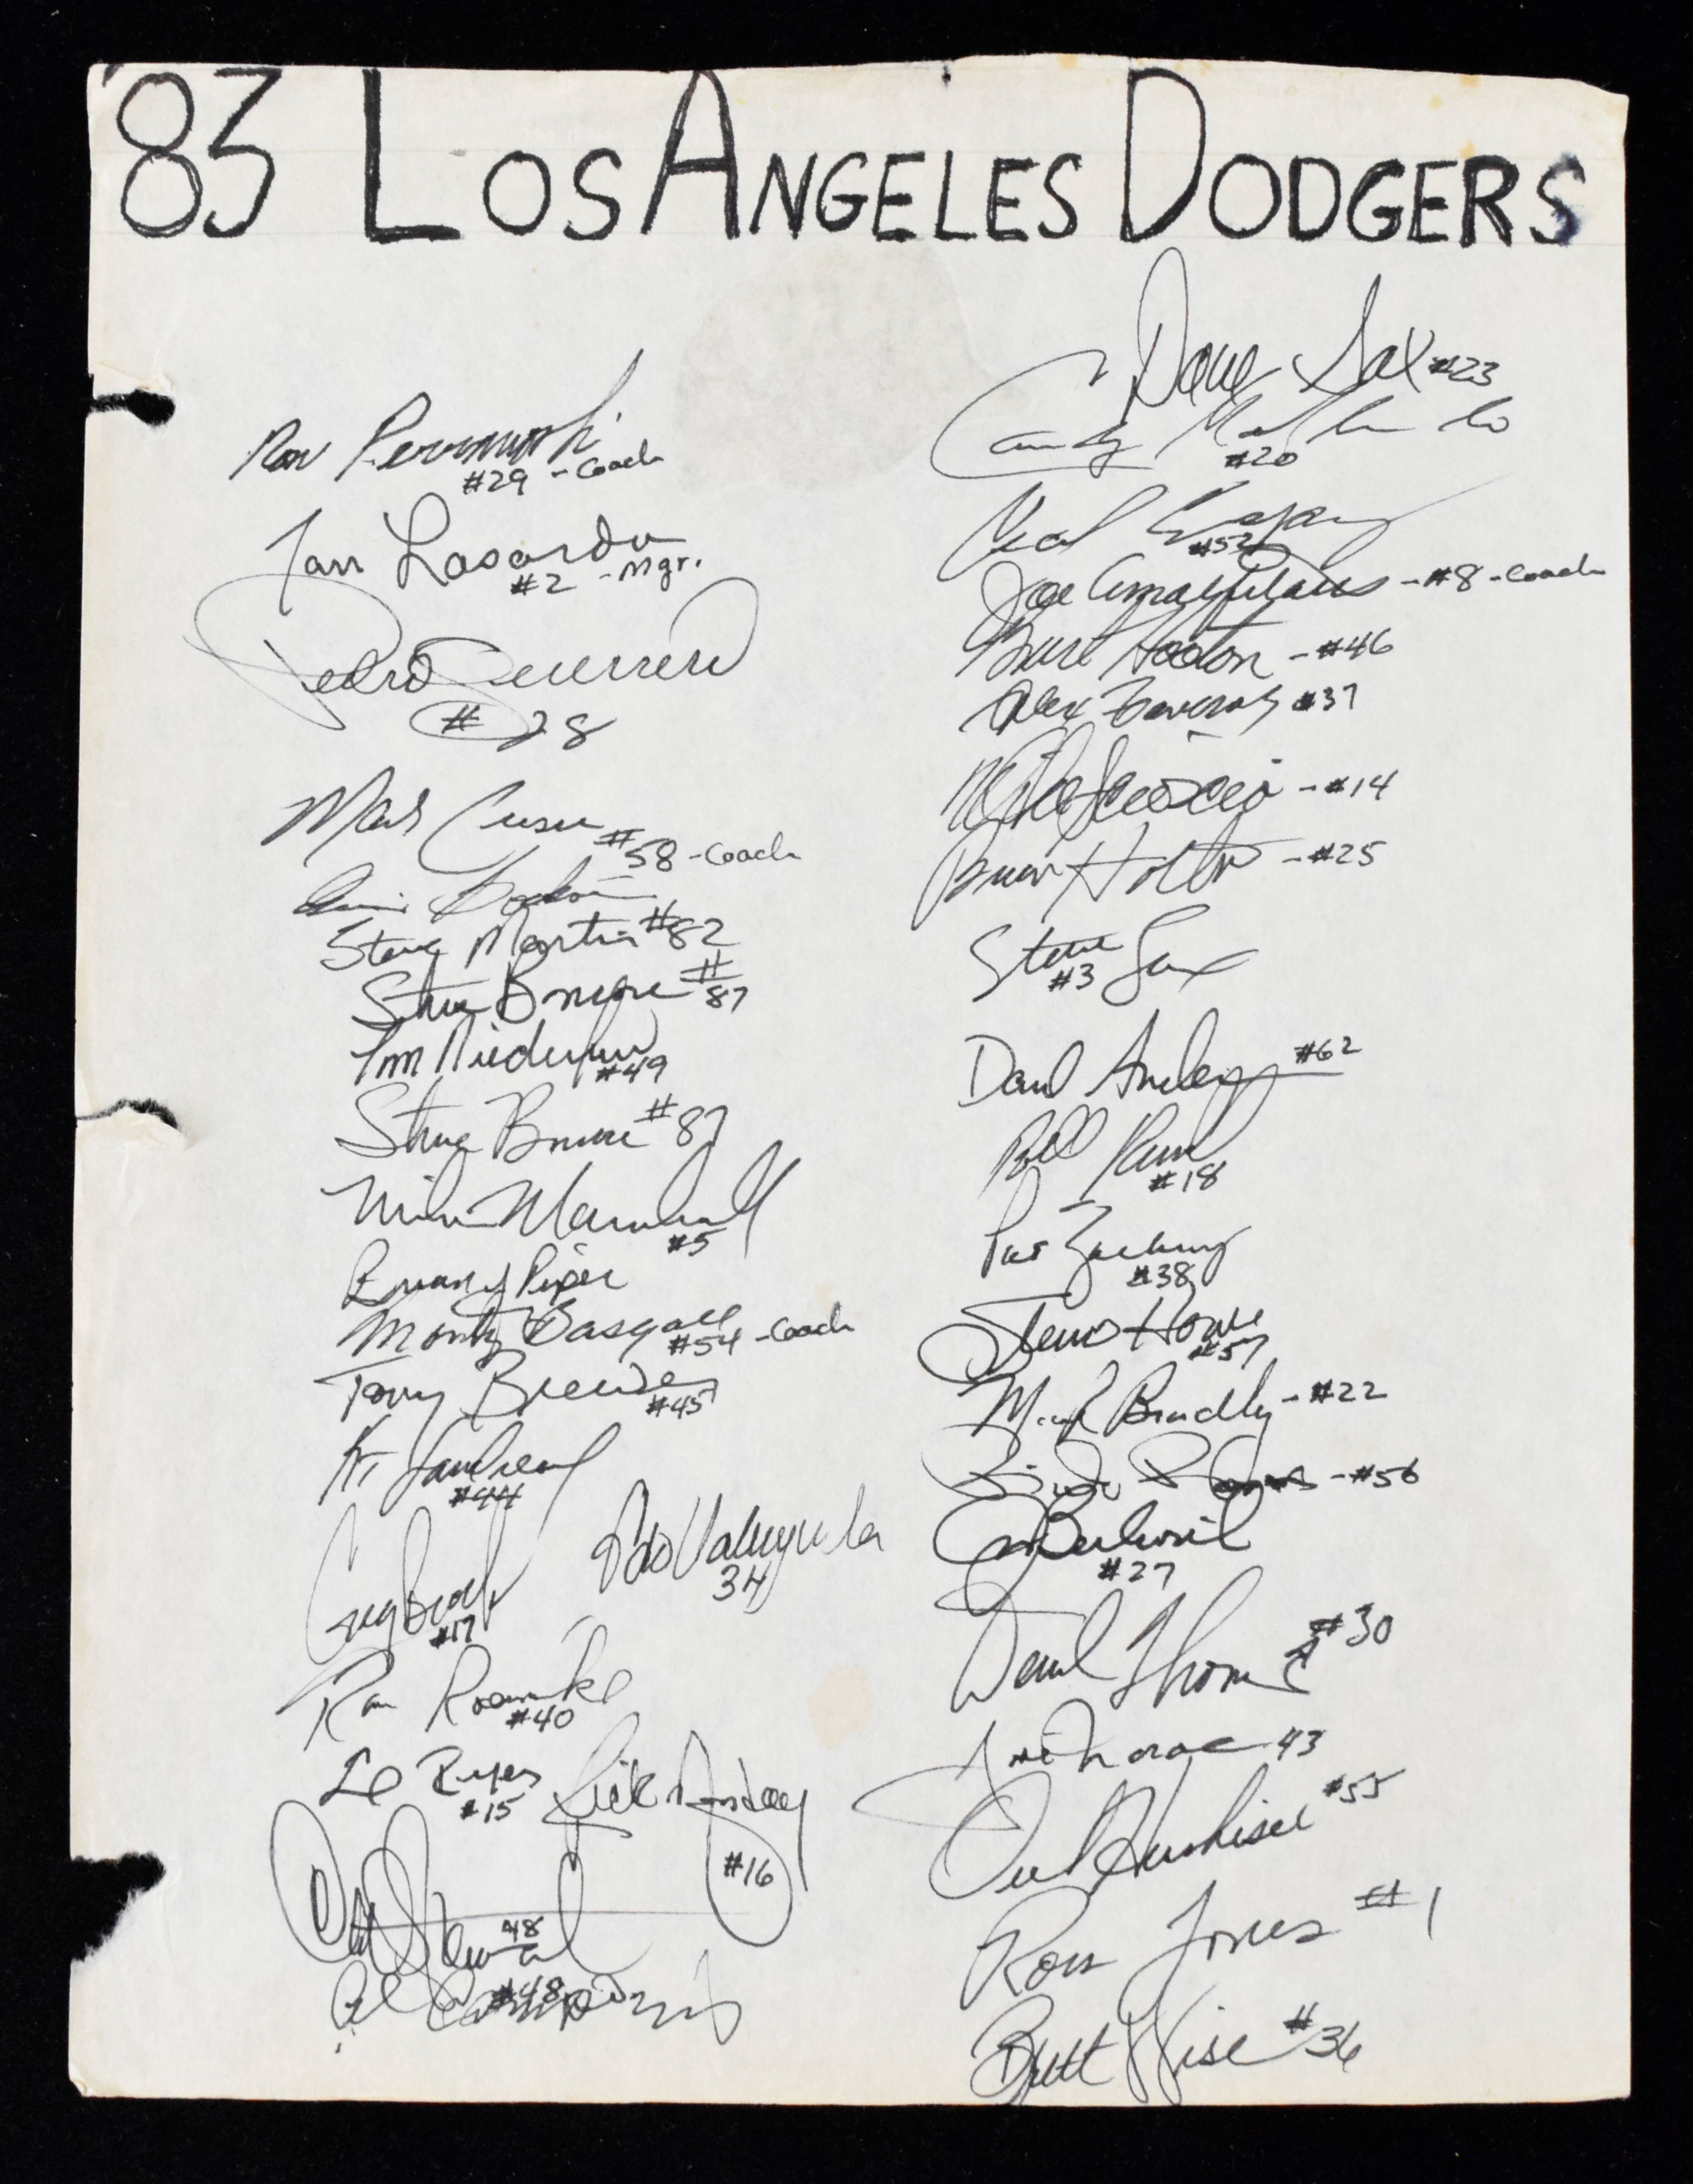 '83 LOS ANGELES DODGERS
Ron Perranoski
#29 - Coach
Tom Lasorda
#2 - Mgr.
Pedro Guerrero
# 28
Mark Cresse
#58 - Coach
Steve Martin #82
Steve Brener #87
Tom Niedenfuer
#49
Steve Brener #87
Mike Marshall
#5
Monty Basgall
#54 - Coach
Tony Brewer
#45
Ken Landreaux
#44
Greg Brock
#17
Valenzuela
34
Ron Roenicke
#40
Reyes
#15
Rick Monday
#16
Dave Stewart
48
#48
Dave Sax #23
Candy Maldonado
#20
#52
Joe Amalfitano - #8 - Coach
Burt Hooton - #46
Alex Taveras #37
Mike Scioscia - #14
Brian Holton - #25
Steve Sax
#3
Dave Anderson #62
Bill Russell
#18
Pat Zachry
#38
Steve Howe
#57
Mark Bradley - #22
- #56
#27
Derrel Thomas #30
43
Orel Hershiser #55
Ross Jones #1
Brett Wise #36